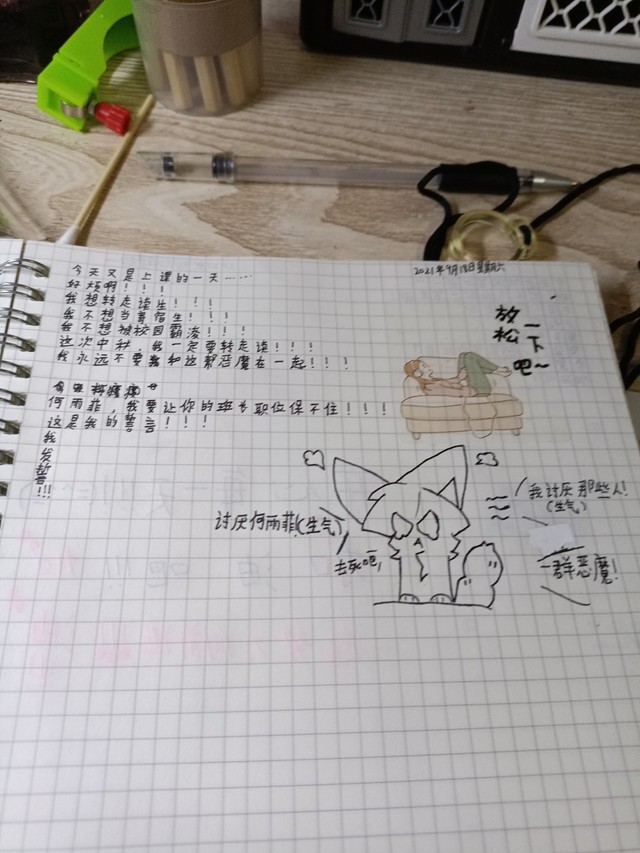 2021年9月18日星期六
今天又是上课的一天……
好烦啊！！！
我想转走读生！！！
我不想当寄宿生！！！
我不想被校园霸凌！！！
这次中秋，我一定要转走读！！！
我永远不要和这帮恶魔在一起！！！
何雨菲，我要让你的班长职位保不住！！！
这是我的誓言！！！
我发誓!!!
放松一下吧~
讨厌何雨菲!(生气)
去死吧,
我讨厌那些人!
(生气)
一群恶魔!